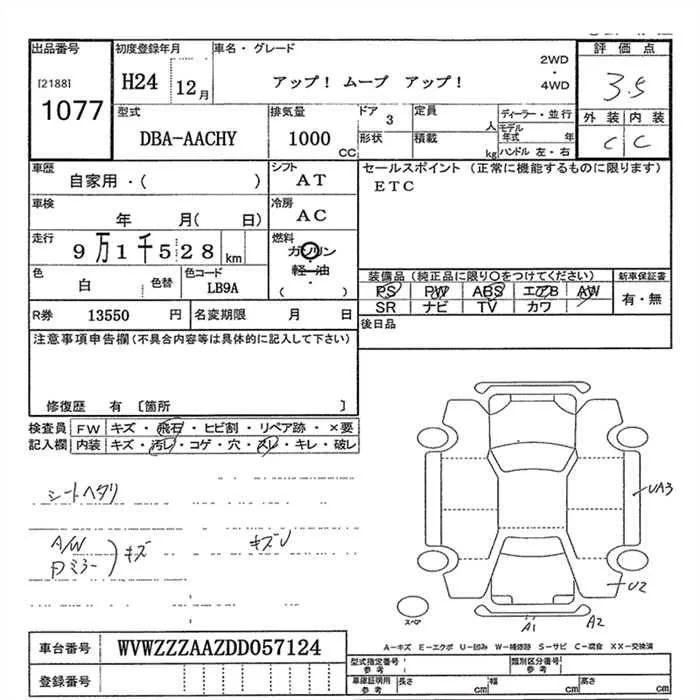 出品番号 初度登録年月 車名・グレード 評価点
[2188] H24 12月 アップ! ムーブ アップ! 2WD ・ 4WD 3.5
1077
型式 排気量 ドア 3 定員 人 ディーラー・並行 外装 内装
DBA-AACHY 1000 CC 形状 積載 kg モデル年式 年 C C
ハンドル 左・右
車歴 シフト セールスポイント (正常に機能するものに限ります)
自家用・( ) AT ETC
車検 冷房
年 月( 日) AC
走行 燃料
9万1千528 km ガソリン
・
軽油
・
( )
色 白 色替 色コード LB9A
装備品(純正品に限り○をつけてください) 新車保証書
PS PW ABS エアB AW 有・無
SR ナビ TV カワ
R券 13550 円 名変期限 月 日
後日品
注意事項申告欄(不具合内容等は具体的に記入して下さい)
修復歴 有 〔箇所 〕
検査員 FW キズ・飛石・ヒビ割・リペア跡・×要
記入欄 内装 キズ・汚レ・コゲ・穴・スレ・キレ・破レ
シートヘタリ
A/W
ドミラー ) キズ
キズU
UA3
U2
A1 A2
スペア
A-キズ E-エクボ U-凹み W-補修跡 S-サビ C-腐食 XX-交換済
車台番号 WVWZZZAAZDD057124
登録番号
型式指定番号 参考 類別区分番号 参考
車庫証明用 参考 長さ cm 幅 cm 高さ cm